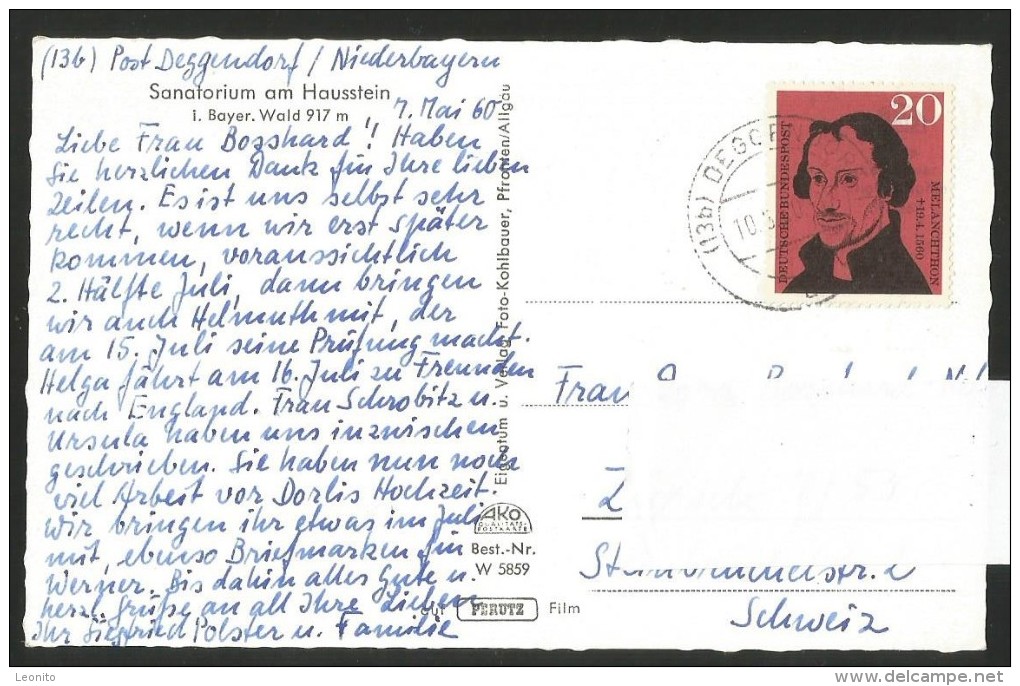 (13b) Post Deggendorf / Niederbayern
Sanatorium am Hausstein
i. Bayer. Wald 917 m
7. Mai 60
Liebe Frau Bosshard! Haben
Sie herzlichen Dank für Ihre lieben
Zeilen. Es ist uns selbst sehr
recht, wenn wir erst später
kommen, voraussichtlich
2. Hälfte Juli, dann bringen
wir auch Helmuth mit, der
am 15. Juli seine Prüfung macht.
Helga fährt am 16. Juli zu Freunden
nach England. Frau Schrobitz u.
Ursula haben uns inzwischen
geschrieben. Sie haben nun noch
viel Arbeit vor Dorlis Hochzeit.
Wir bringen ihr etwas im Juli
mit, ebenso Briefmarken für
Werner. Bis dahin alles Gute u.
herzl. Grüße an all Ihre Lieben
Ihr Siegfried Polster u. Familie
Eigentum u. Verlag Foto-Kohlbauer, Pfronten/Allgäu
AKO
QUALITÄTS-
POSTKARTE
Best.-Nr.
W 5859
auf PERUTZ Film
(13b) DEGGE
10.5
20
DEUTSCHE BUNDESPOST
MELANCHTHON
†19.4.1560
Frau
Z
Schweiz
Leonito
delcampe.net